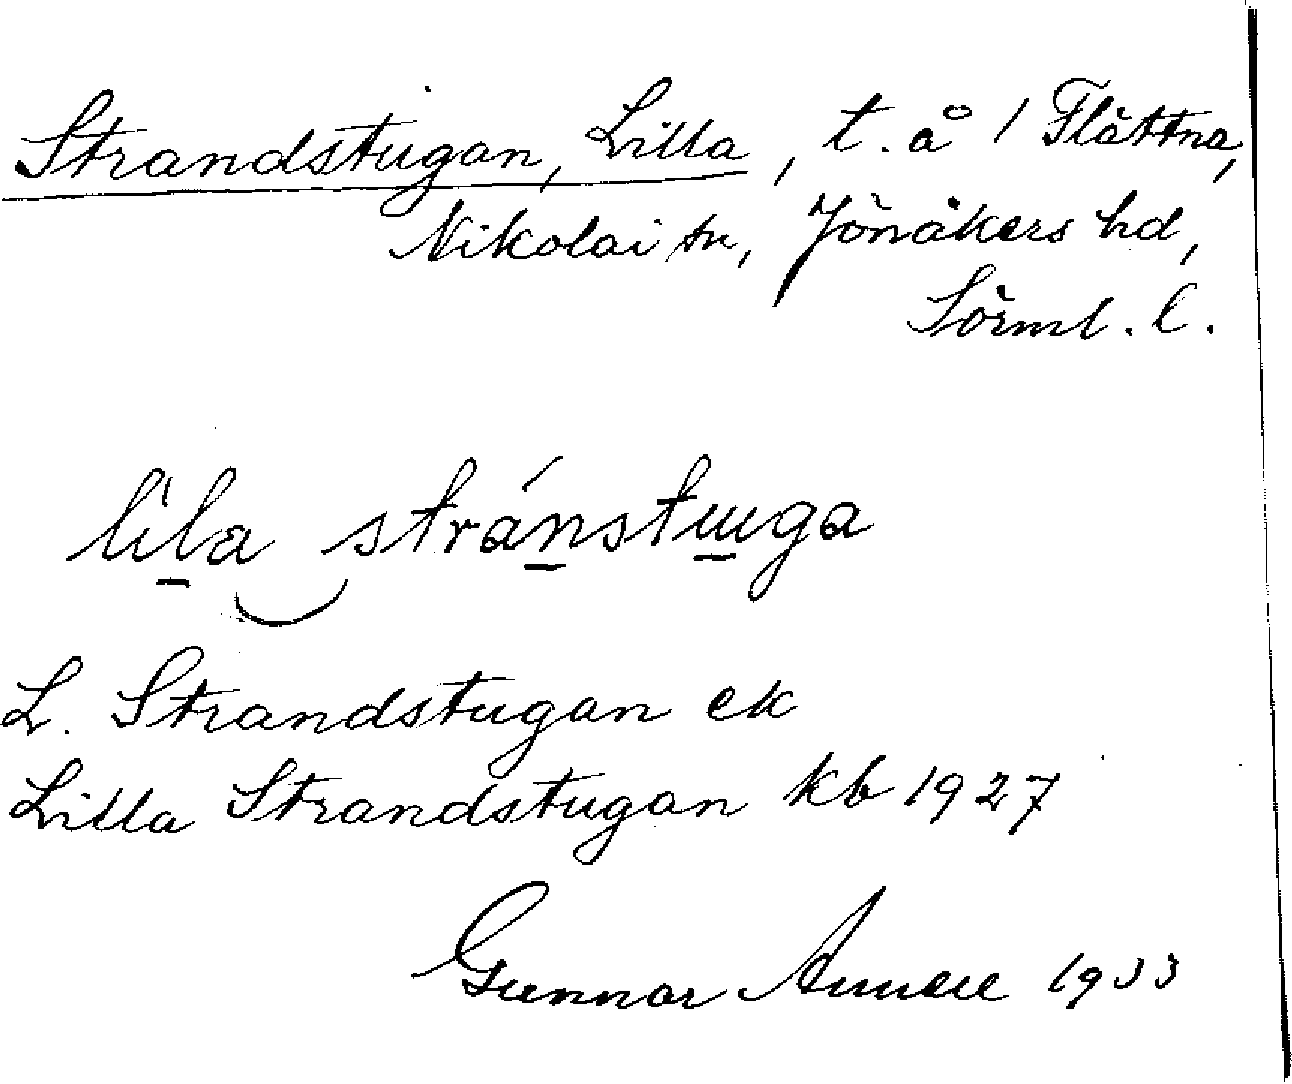 Strandstugan, Lilla, t. å 1 Flättna,
Nikolai sn, Jönåkers hd,
Sörml. l.
lìla stránstɯga
L. Strandstugan ek
Lilla Strandstugan kb 1927
Gunnar 1933